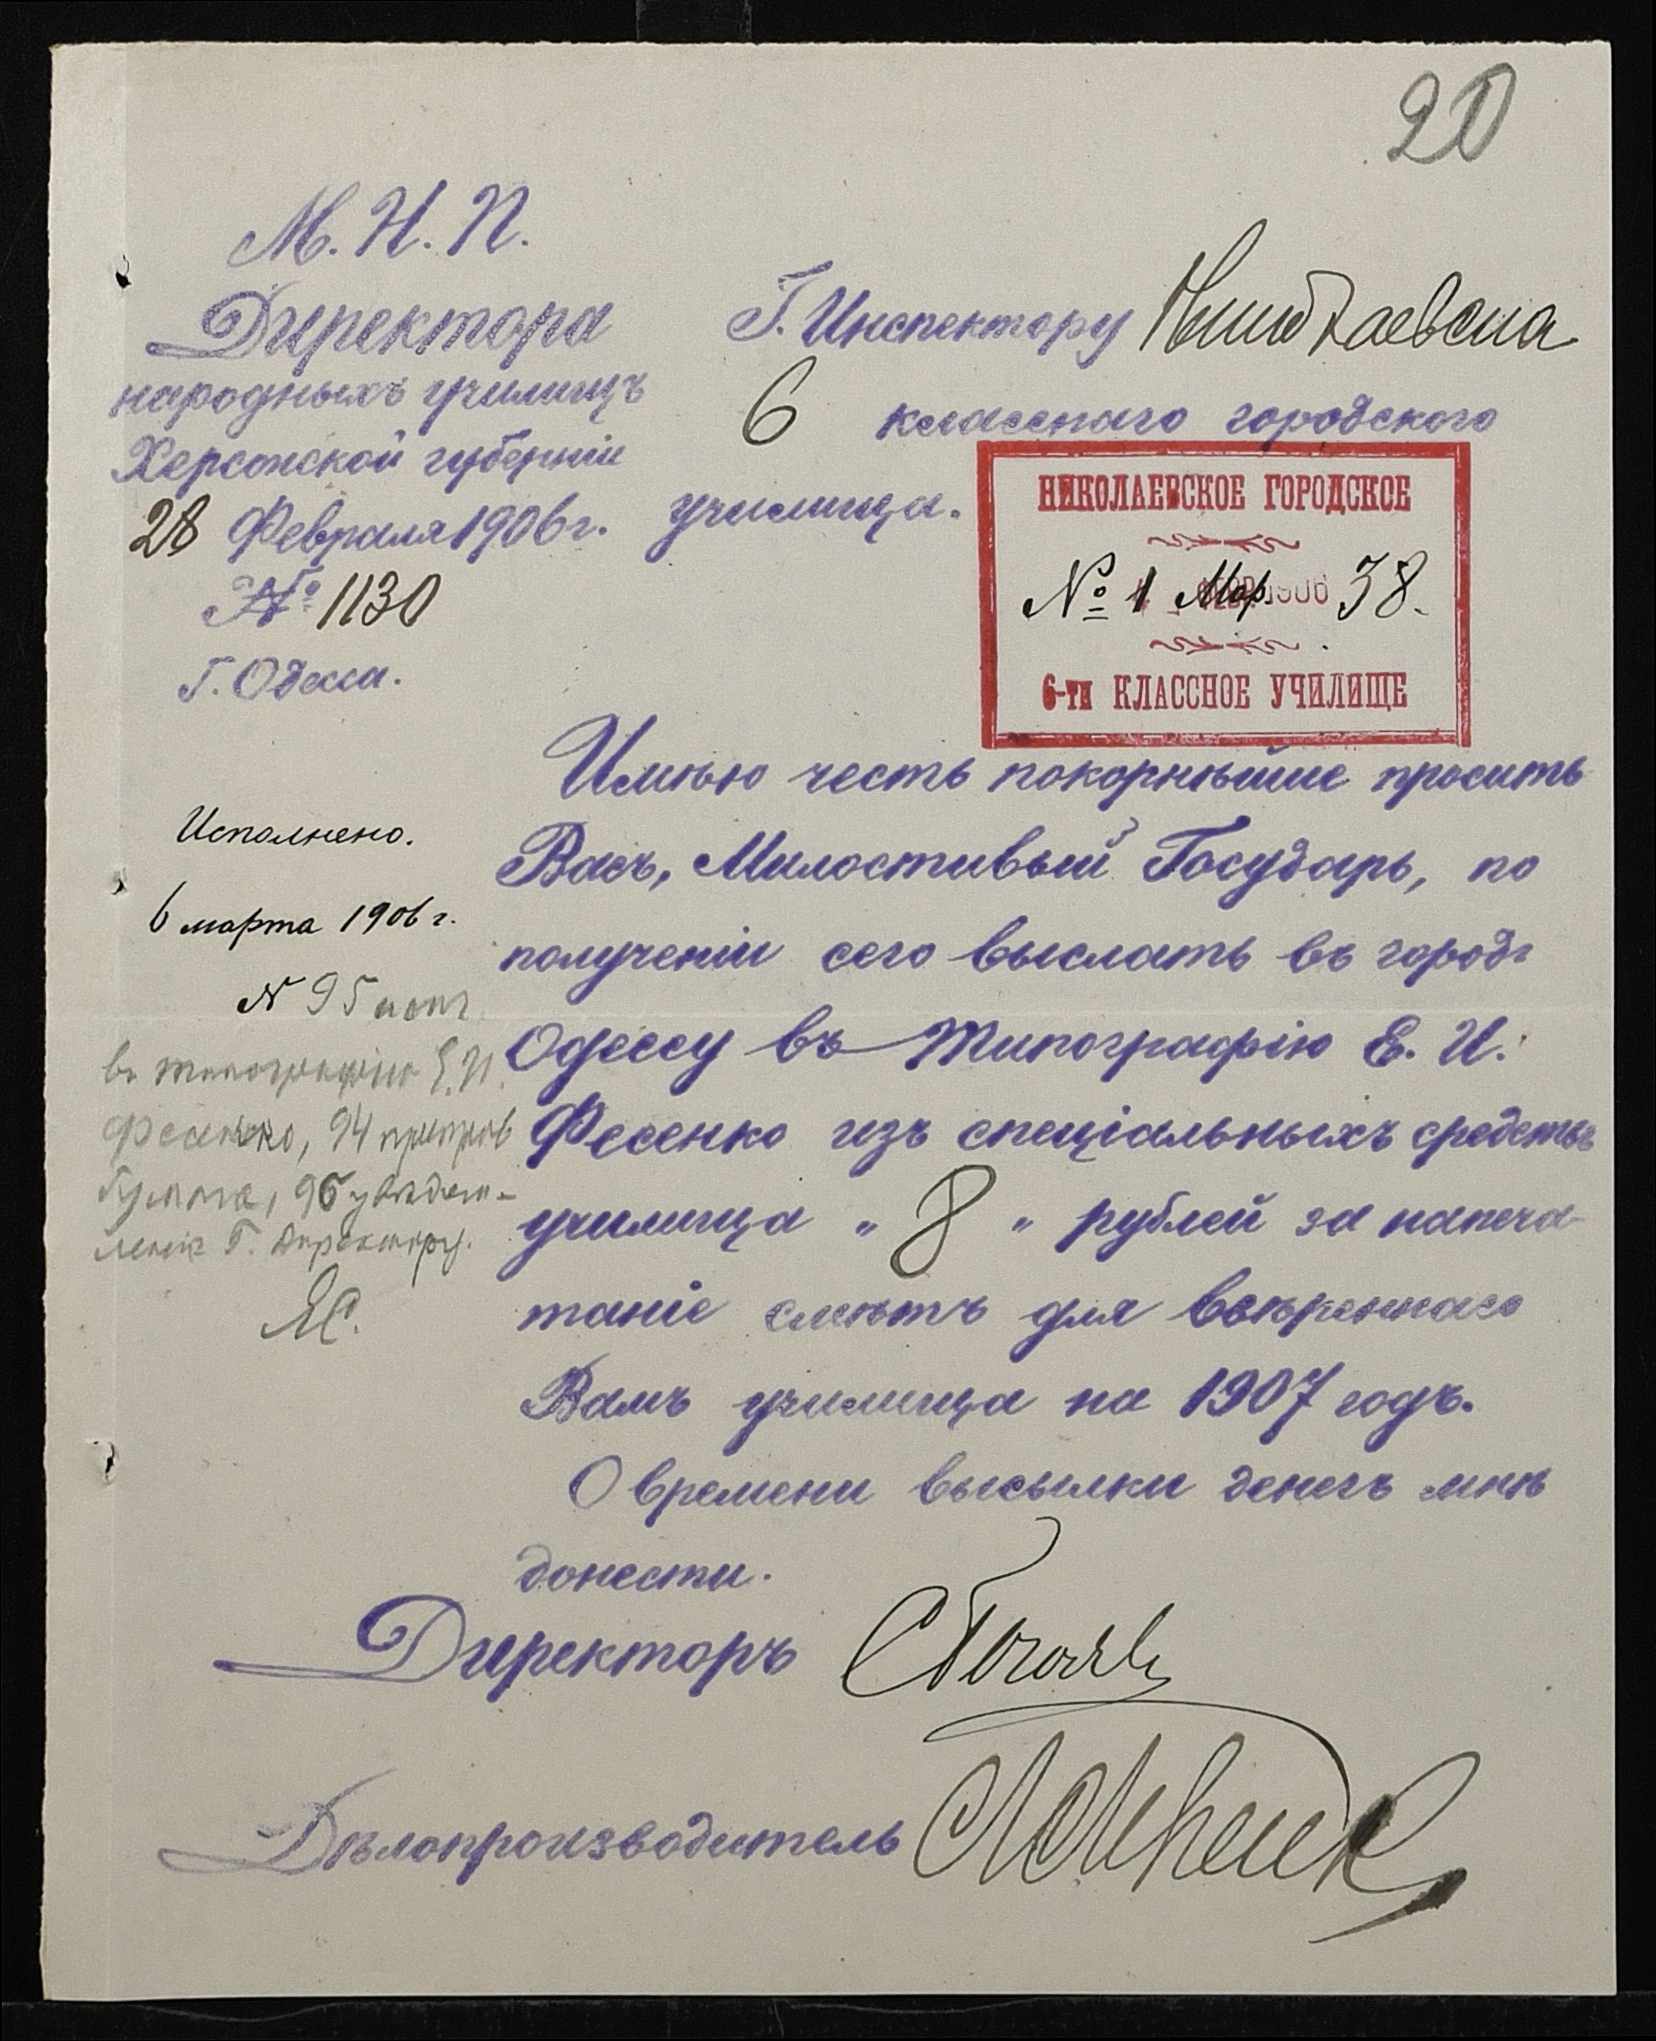 20
М. Н. П.
Директора
народныхъ училищъ
Херсонской губерніи
28 Февраля 1906 г.
№ 1130
Г. Одесса.
Г. Инспектору
6 класснаго городского
училища.
НИКОЛАЕВСКОЕ ГОРОДСКОЕ
№ 1 Мар 1906 38.
6-ти КЛАССНОЕ УЧИЛИЩЕ
Исполнено.
6 марта 1906 г.
N 95
въ типографію Е. И.
Фесенко, 94
96 увѣдом-
леніе Г. Директору.
Имѣю честь покорнѣйше просить
Васъ, Милостивый Государь, по
полученіи сего выслать въ городъ
Одессу въ Типографію Е. И.
Фесенко изъ спеціальныхъ средствъ
училища „ 8 " рублей за напеча-
таніе смѣтъ для ввѣреннаго
Вамъ училища на 1907 годъ.
О времени высылки денегъ мнѣ
донести.
Директоръ
Дѣлопроизводитель